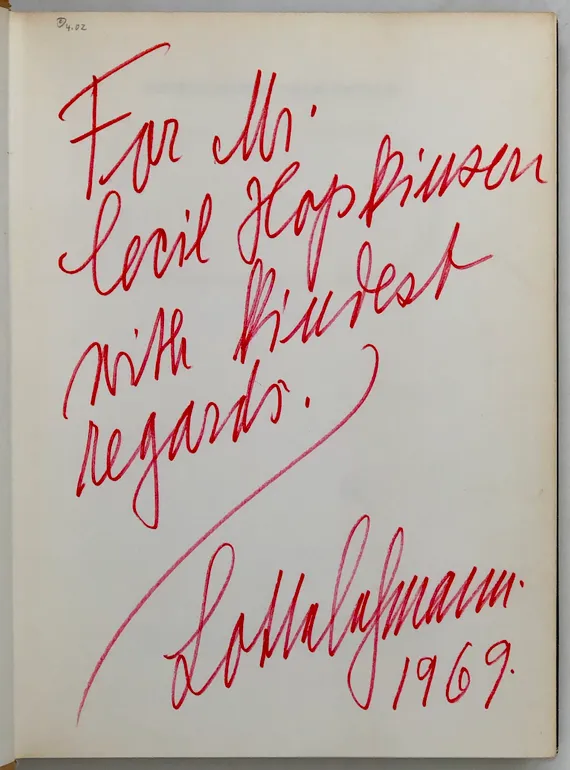 For Mr.
Cecil Hopkinson
with kindest
regards.
Lotte Lehmann.
1969.